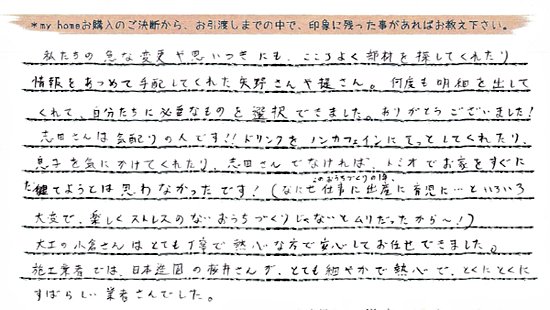 *my homeお購入のご決断から、お引渡しまでの中で、印象に残った事があればお教え下さい。
私たちの急な変更や思いつきにも、こころよく部材を探してくれたり
情報をあつめて手配してくれた矢野さんや提さん。何度も明細を出して
くれて、自分たちに必要なものを選択できました。ありがとうございました!
志田さんは気配りの人です!!ドリンクをノンカフェインにそっとしてくれたり、
息子を気にかけてくれたり、志田さんでなければ、トミオでお家をすぐに
建てようとは思わなかったです!(なにせ このおうちづくりの1年、仕事に出産に育児に…といろいろ
大変で、楽しくストレスのないおうちづくりじゃないとムリだったから〜!)
大工の小倉さんはとても丁寧で熱心な方で安心してお任せできました。
施工業者では、日本造園の桜井さんが、とても細やかで熱心で、とくにとくに
すばらしい業者さんでした。